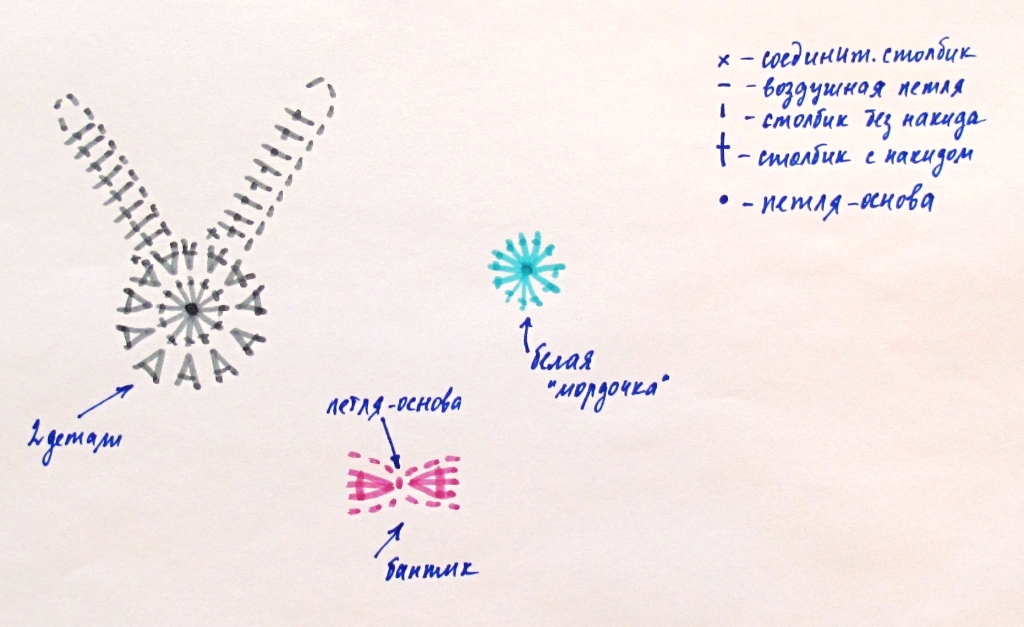 x - соединит. столбик
- - воздушная петля
ı - столбик без накида
† - столбик с накидом
• - петля-основа
белая
"мордочка"
петля-основа
2 детали
бантик